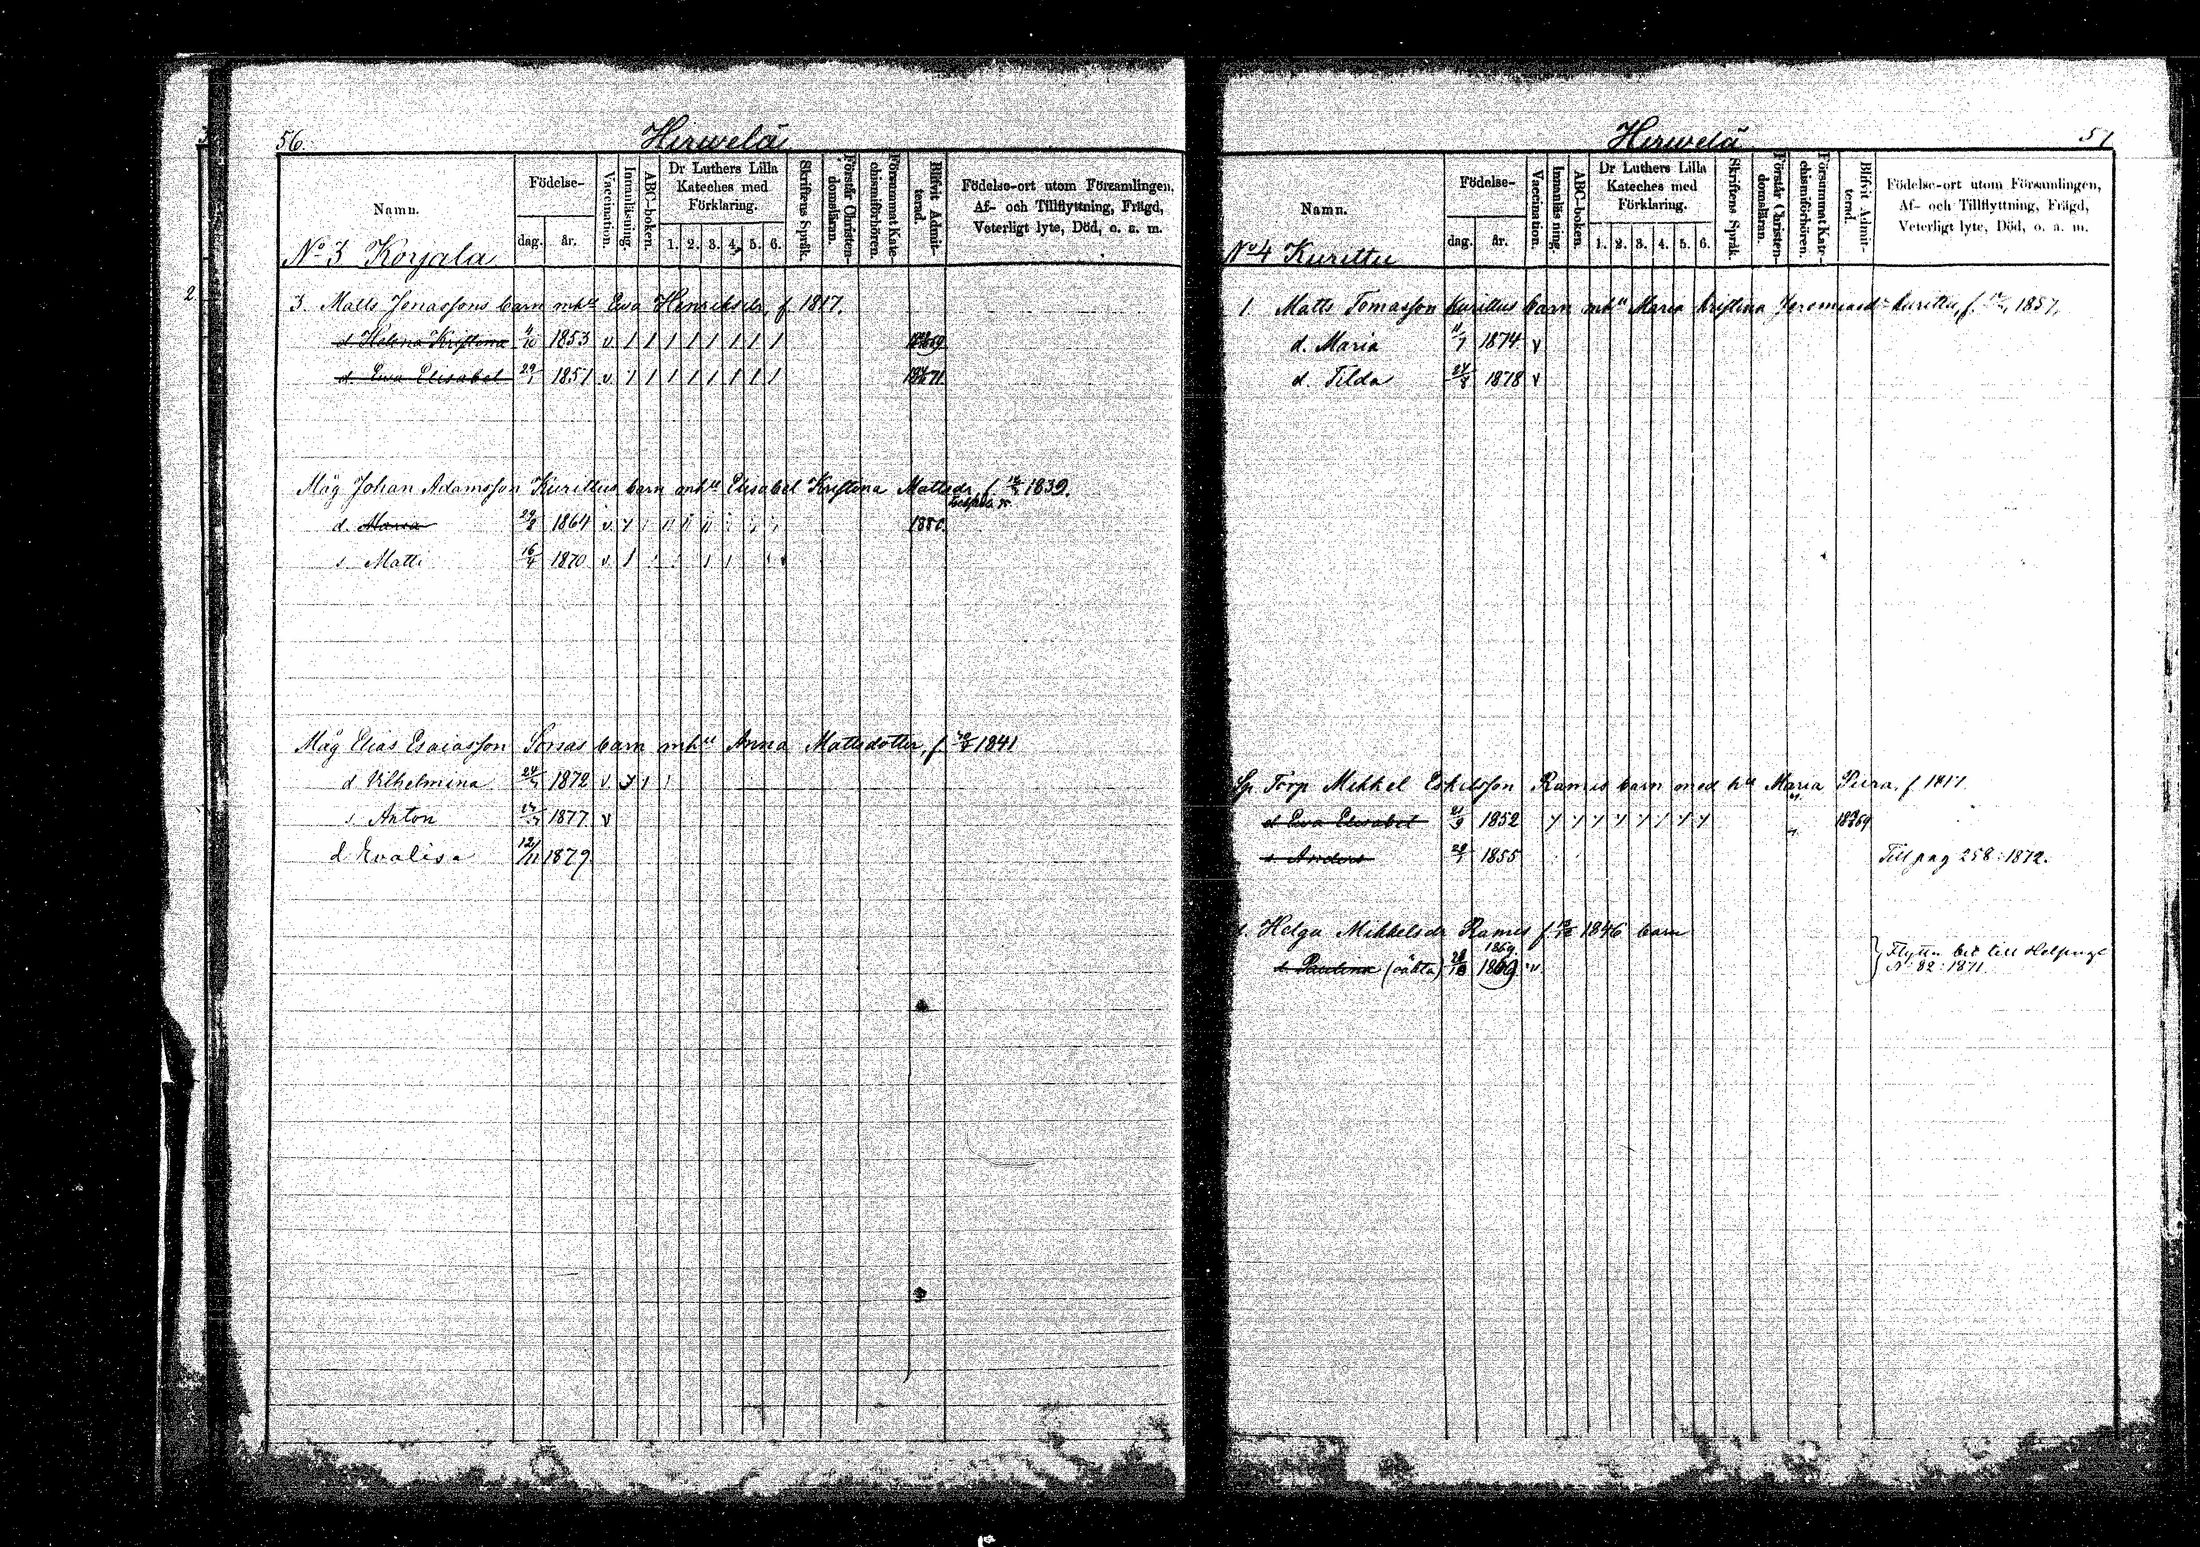 56.
Hirwelä
Namn.
Födelse-
dag.
år.
Vaccination.
Innanläsning.
ABC-boken.
Dr Luthers Lilla Kateches med Förklaring.
1. 2. 3. 4. 5. 6.
Skriftens Språk.
Förstår Christendomslären.
Försummat Katechismiförhören.
Blifvit Admitterad.
Födelse-ort utom Församlingen,
Af- och Tillflyttning, Frägd,
Veterligt lyte, Död, o. a. m.
No 3 Korjala
2.
3. Matts Jonassons barn mhu Ewa Henriksdr, f. 1817.
d. Helena Kristina 1853 v / / / / / / / /
d. Ewa Elisabet 29/1 1851 v / / / / / / / /
Måg Johan Adamsson Kurittus barn mhu Elisabet Kristina Mattsdr f 1839.
d. Maria 29/8 1864 v 1880.
s Matts 16/4 1870 v
Måg Elias Esaiasson Sonas barn mhu Anna Mattsdotter, f. 1841
d Vilhelmina 1872 v
s. Anton 1877 v
d. Evalisa 12/11 1879
Hirwelä
51
Namn.
Födelse-
dag.
år.
Vaccination.
Innanläsning.
ABC-boken.
Dr Luthers Lilla Kateches med Förklaring.
1. 2. 3. 4. 5. 6.
Skriftens Språk.
Förstår Christendomslären.
Försummat Katechismiförhören.
Blifvit Admitterad.
Födelse-ort utom Församlingen,
Af- och Tillflyttning, Frägd,
Veterligt lyte, Död, o. a. m.
No 4 Kurittu
1. Matts Tomasson Kurittus barn mhu Maria Kristina Jeremiasdr Kurittu, f. 1857,
d. Maria 11/7 1874 v
d. Tilda 24/8 1878 v
Sp. Torp Mikkel Eskilsson Ramis barn med hu Maria Piira, f 1817.
d Ewa Elisabet 1852
s. Anders 1855 Till pag 258: 1872.
d. Helga Mikkelsdr Ramis f 1846 barn
1869.
d. Paulina (oäkta) 1869 v
Flyttn bet till Helsinge
No 82: 1871.